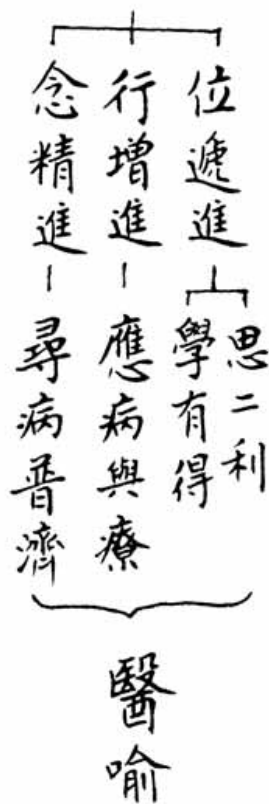 位遞進
思二利
學有得
行增進
應病與療
念精進
尋病普濟
醫喻